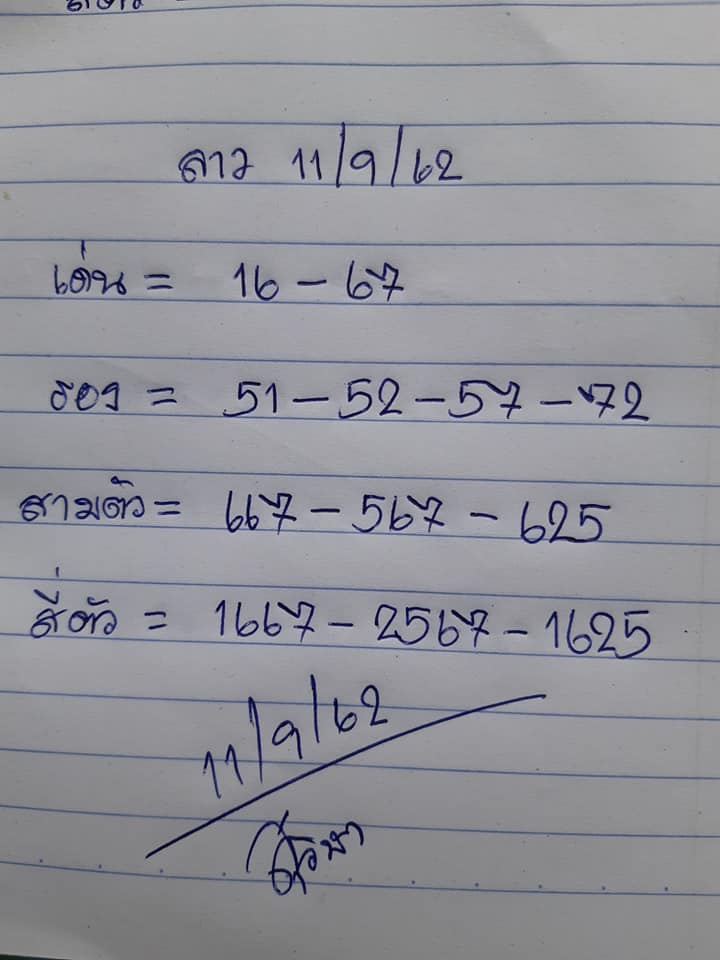 ลาว 11/9/62
เด่น = 16 - 67
รอง = 51 - 52 - 57 - 72
สามตัว = 667 - 567 - 625
สี่ตัว = 1667 - 2567 - 1625
11/9/62